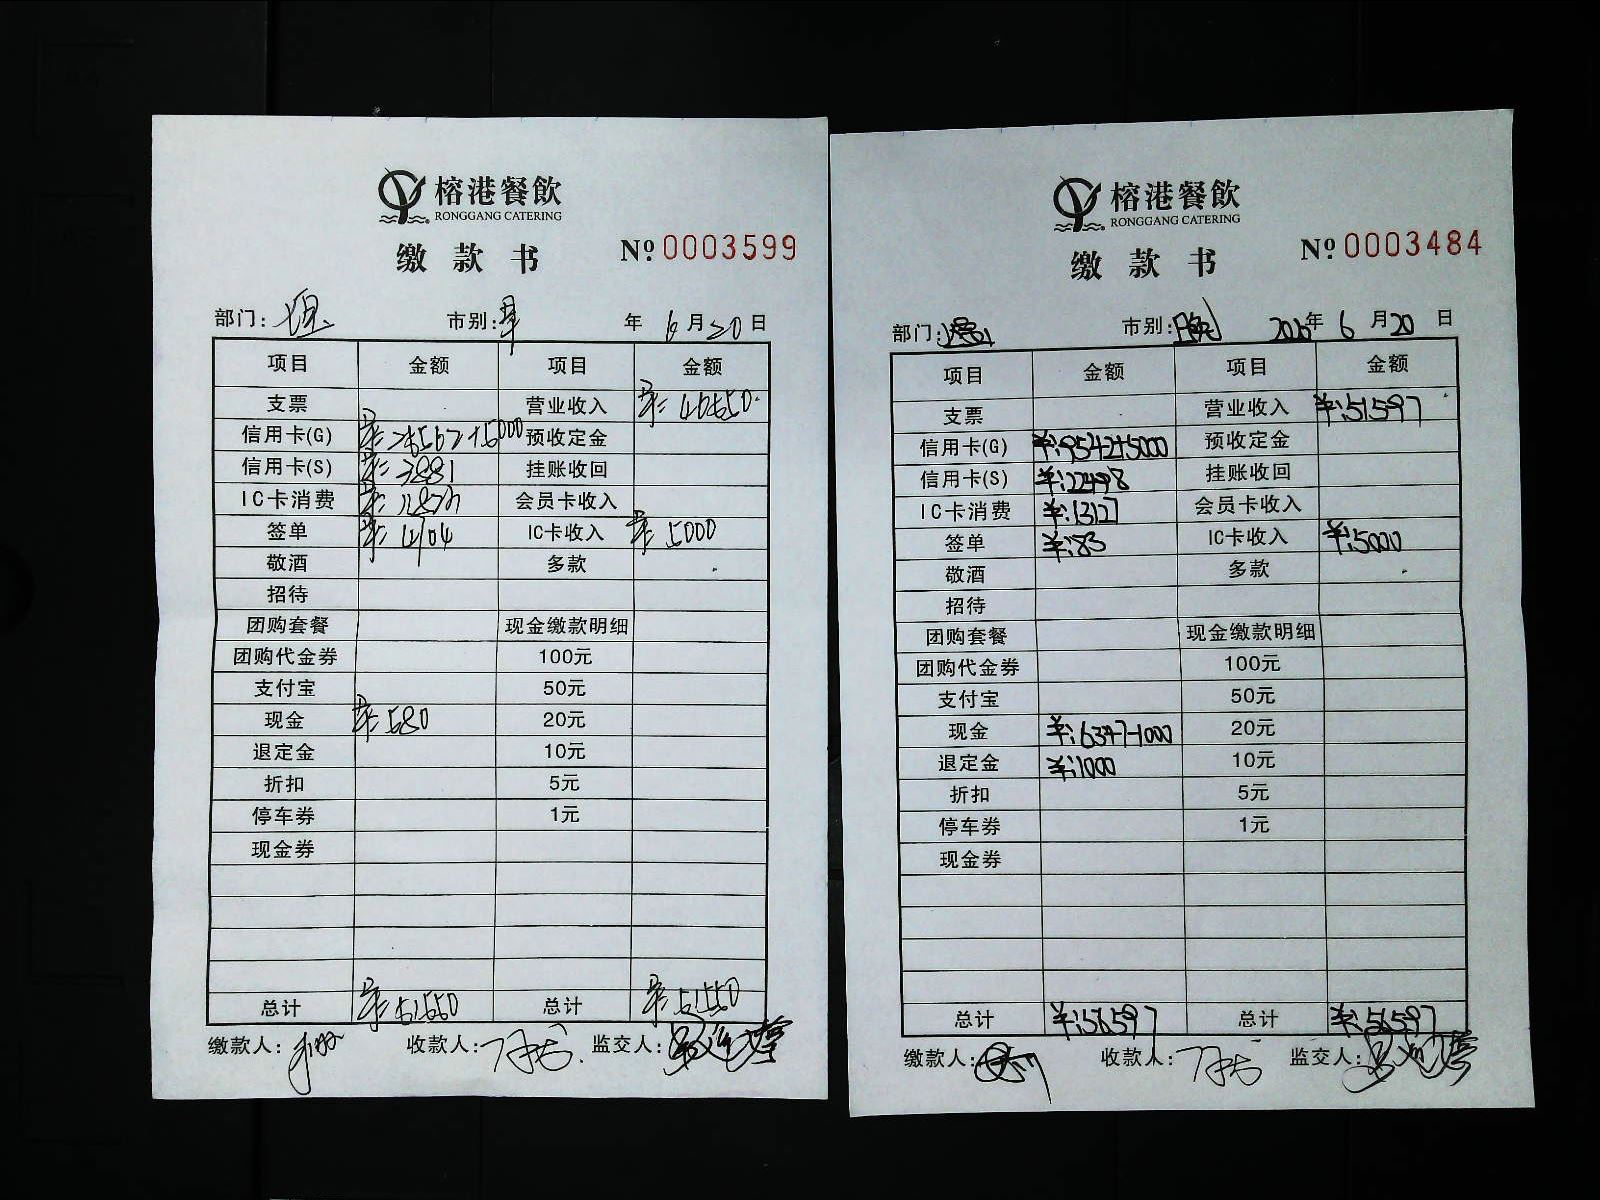 榕港餐飲
RONGGANG CATERING
缴款书
№ 0003599
部门: 市别: 年 6 月 20 日
项目 金额 项目 金额
支票 营业收入 ¥: 46550
信用卡(G) 预收定金
信用卡(S) 挂账收回
IC卡消费 会员卡收入
签单 ¥: 4104 IC卡收入 ¥: 5000
敬酒 多款
招待
团购套餐 现金缴款明细
团购代金券 100元
支付宝 50元
现金 ¥: 580 20元
退定金 10元
折扣 5元
停车券 1元
现金券
总计 ¥: 51550 总计 ¥: 51550
缴款人: 收款人: 监交人:
榕港餐飲
RONGGANG CATERING
缴款书
№ 0003484
部门: 市别: 晚 年 6 月 20 日
项目 金额 项目 金额
支票 营业收入 ¥: 51597
信用卡(G) ¥: 9542+5000 预收定金
信用卡(S) ¥: 22498 挂账收回
IC卡消费 ¥: 13127 会员卡收入
签单 ¥: 83 IC卡收入 ¥: 5000
敬酒 多款
招待
团购套餐 现金缴款明细
团购代金券 100元
支付宝 50元
现金 ¥: 6347-1000 20元
退定金 ¥: 1000 10元
折扣 5元
停车券 1元
现金券
总计 ¥: 56597 总计 ¥: 56597
缴款人: 收款人: 监交人: